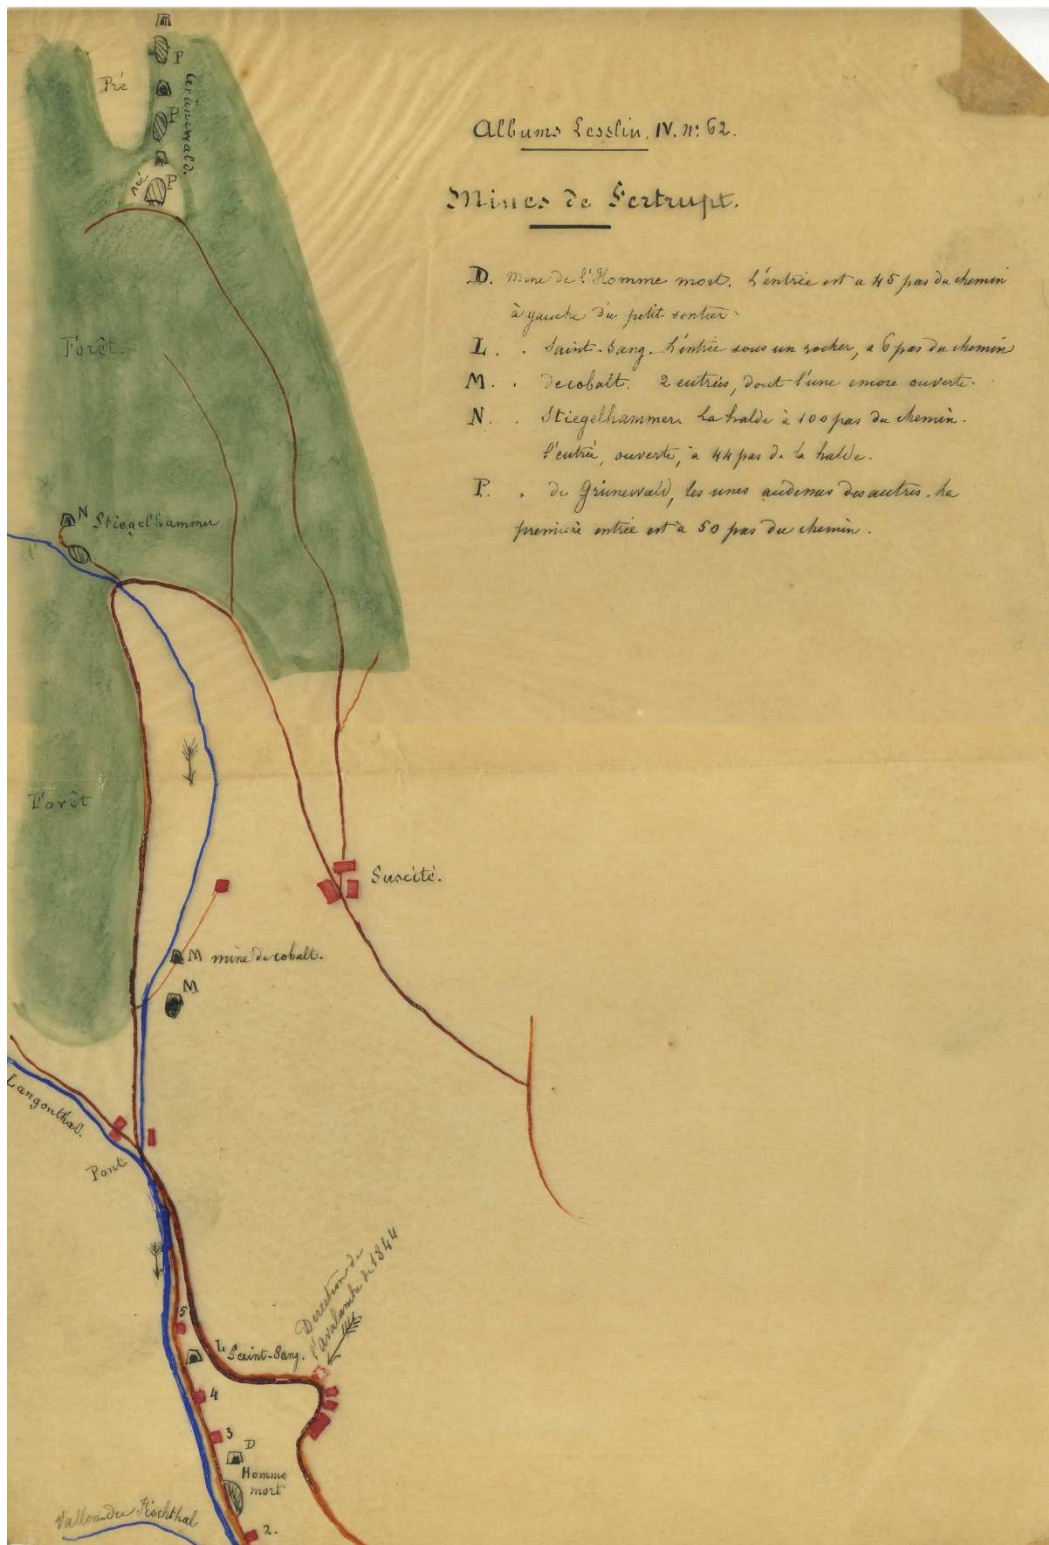 Albums Lesslin. IV. n: 62.
Mines de Fertrupt.
D. Mine de l'Homme mort. L'entrée est a 45 pas du chemin
à gauche du petit sentier.
L. . Saint-Sang. L'entrée sous un rocher, a 6 pas du chemin
M. . de cobalt. 2 entrées, dont l'une encore ouverte.
N. . Stiegelhammer. La halde à 100 pas du chemin.
l'entrée, ouverte, à 44 pas de la halde.
P. . de Grünewald, les unes audessus des autres. La
première entrée est à 50 pas du chemin.
Pré
P
Grünewald.
P
Pré
P
Forêt.
N Stiegelhammer
Forêt
Suscité.
M mine de cobalt.
M
Langonthal.
Pont
Direction de
l'avalanche de 1844
5
L Saint-Sang.
4
3
D
Homme
mort
Vallon du Kischthal
2.